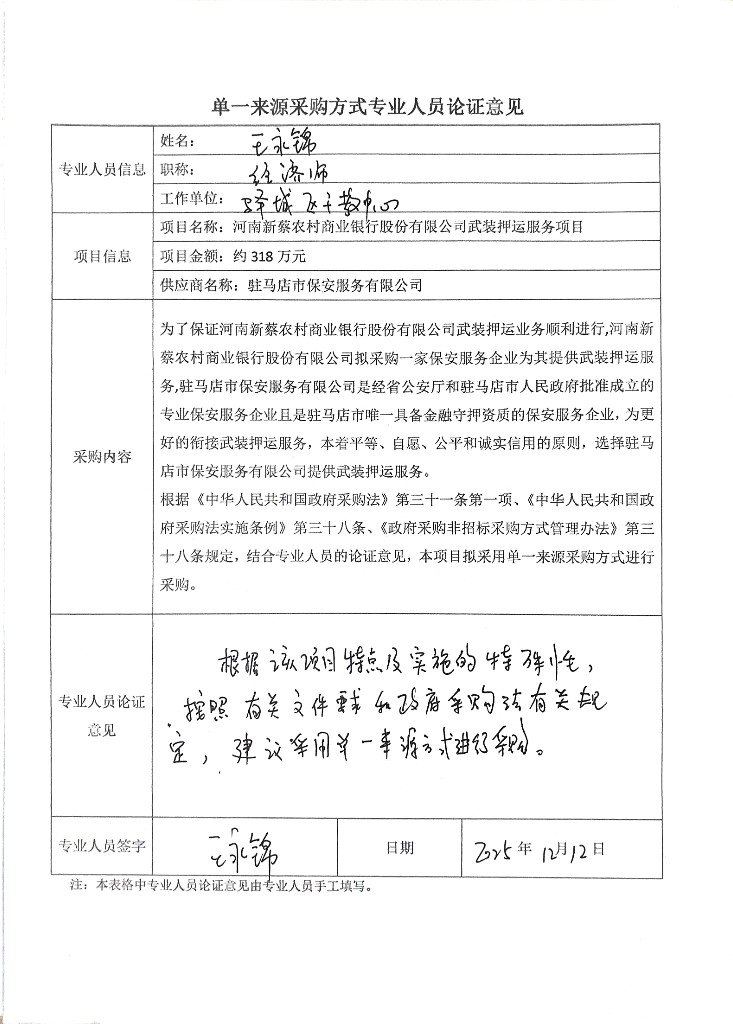 单一来源采购方式专业人员论证意见
专业人员信息
姓名: 王永锦
职称: 经济师
工作单位: 驿城区干教中心
项目信息
项目名称: 河南新蔡农村商业银行股份有限公司武装押运服务项目
项目金额: 约 318 万元
供应商名称: 驻马店市保安服务有限公司
采购内容
为了保证河南新蔡农村商业银行股份有限公司武装押运业务顺利进行,河南新
蔡农村商业银行股份有限公司拟采购一家保安服务企业为其提供武装押运服
务,驻马店市保安服务有限公司是经省公安厅和驻马店市人民政府批准成立的
专业保安服务企业且是驻马店市唯一具备金融守押资质的保安服务企业,为更
好的衔接武装押运服务,本着平等、自愿、公平和诚实信用的原则,选择驻马
店市保安服务有限公司提供武装押运服务。
根据《中华人民共和国政府采购法》第三十一条第一项、《中华人民共和国政
府采购法实施条例》第三十八条、《政府采购非招标采购方式管理办法》第三
十八条规定,结合专业人员的论证意见,本项目拟采用单一来源采购方式进行
采购。
专业人员论证
意见
根据该项目特点及实施的特殊性,
按照有关文件要求和政府采购法有关规
定,建议采用单一来源方式进行采购。
专业人员签字 王永锦 日期 2025年12月12日
注:本表格中专业人员论证意见由专业人员手工填写。